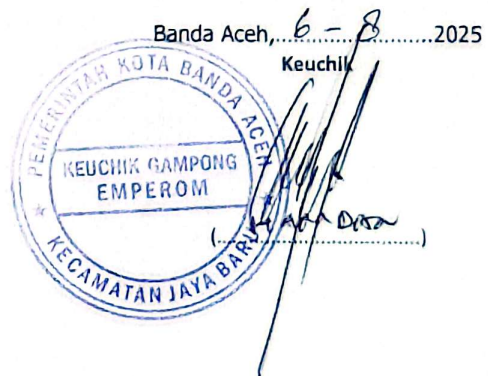 Banda Aceh, 6 - 8 2025
Keuchik
PEMERINTAH KOTA BANDA ACEH
KEUCHIK GAMPONG
EMPEROM
KECAMATAN JAYA BARU